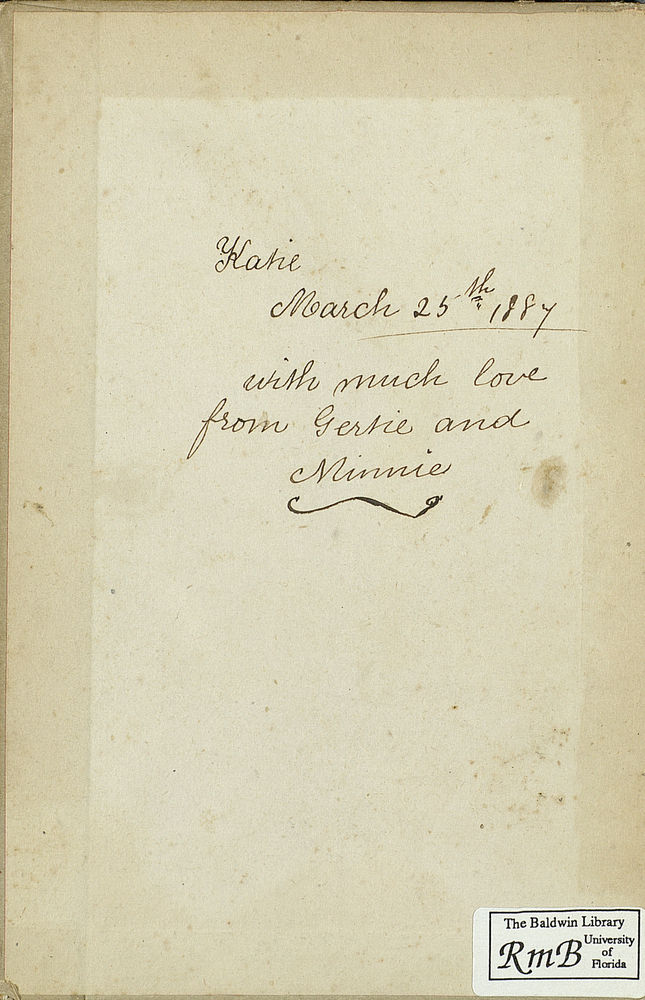 Katie
March 25th 1887
with much love
from Gertie and
Minnie
The Baldwin Library
RmB University
of
Florida